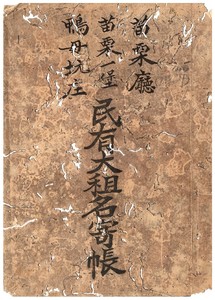 苗栗廳
苗栗一堡
鴨母坑庄
民有大租名寄帳